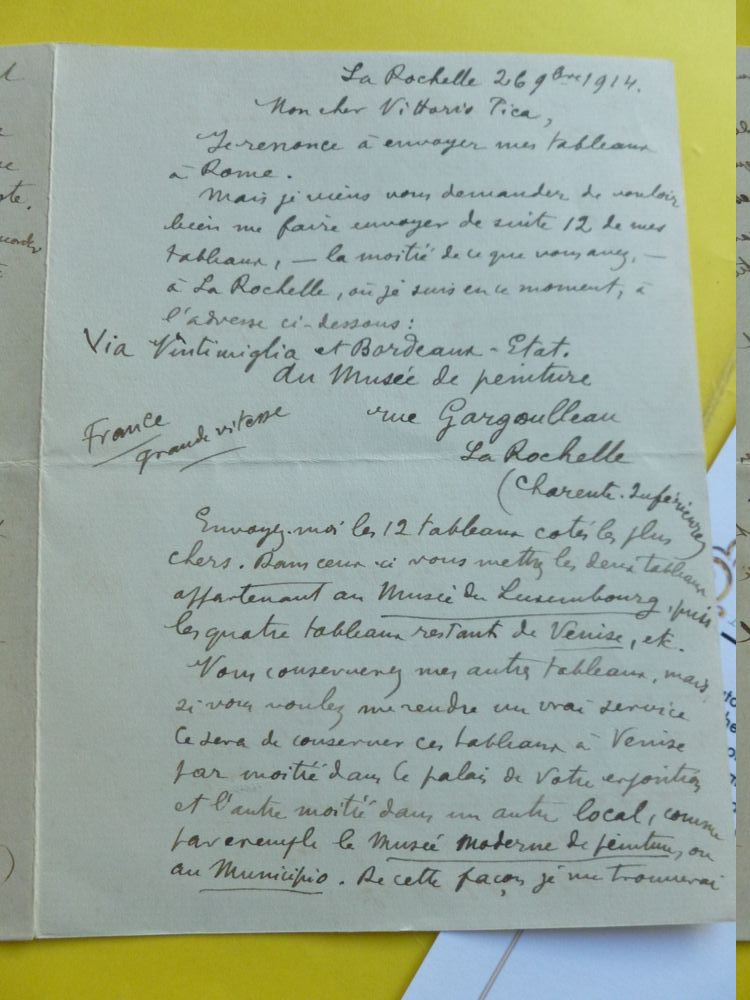 La Rochelle 26 9bre 1914.
Mon cher Vittorio Pica,
Je renonce à envoyer mes tableaux
à Rome.
Mais je viens vous demander de vouloir
bien me faire envoyer de suite 12 de mes
tableaux, — la moitié de ce que vous avez, —
à La Rochelle, où je suis en ce moment, à
l'adresse ci-dessous :
Via Vintimiglia et Bordeaux - Etat.
du Musée de peinture
rue Gargoulleau
France
grande vitesse
La Rochelle
(Charente-Inférieure)
Envoyez-moi les 12 tableaux cotés les plus
chers. Dans ceux-ci vous mettez les deux tableaux
appartenant au Musée du Luxembourg, puis
les quatre tableaux restant de Venise, etc.
Vous conserverez mes autres tableaux, mais,
si vous voulez me rendre un vrai service
ce sera de conserver ces tableaux à Venise
par moitié dans le palais de votre exposition
et l'autre moitié dans un autre local, comme
par exemple le Musée moderne de peinture, ou
au Municipio. De cette façon je me trouverai